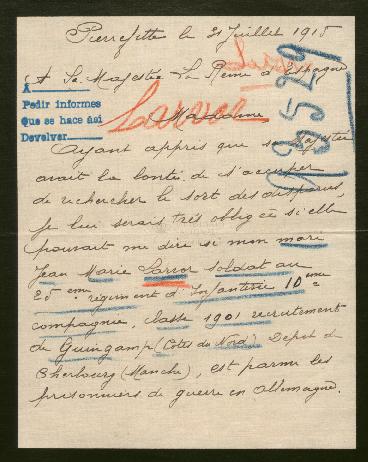 Pierrefitte le 31 Juillet 1915
A Sa Majestée La Reine d'Espagne
A
Pedir informes
Que se hace asi
Devolver
Larvor
Madame
13529
Ayant appris que sa Majestée
avait la bonté de s'accuper
de rechercher le sort des disparus,
je lui serais très obligée si elle
pouvait me dire si mon mari
Jean Marie Larvor soldat au
25eme régiment d'Infanterie 10eme
compagnie, classe 1901 recrutement
de Guingamp (Côtes du Nord) Depot de
Cherbourg (Manche), est parmi les
prisonniers de guerre en Allemagne.